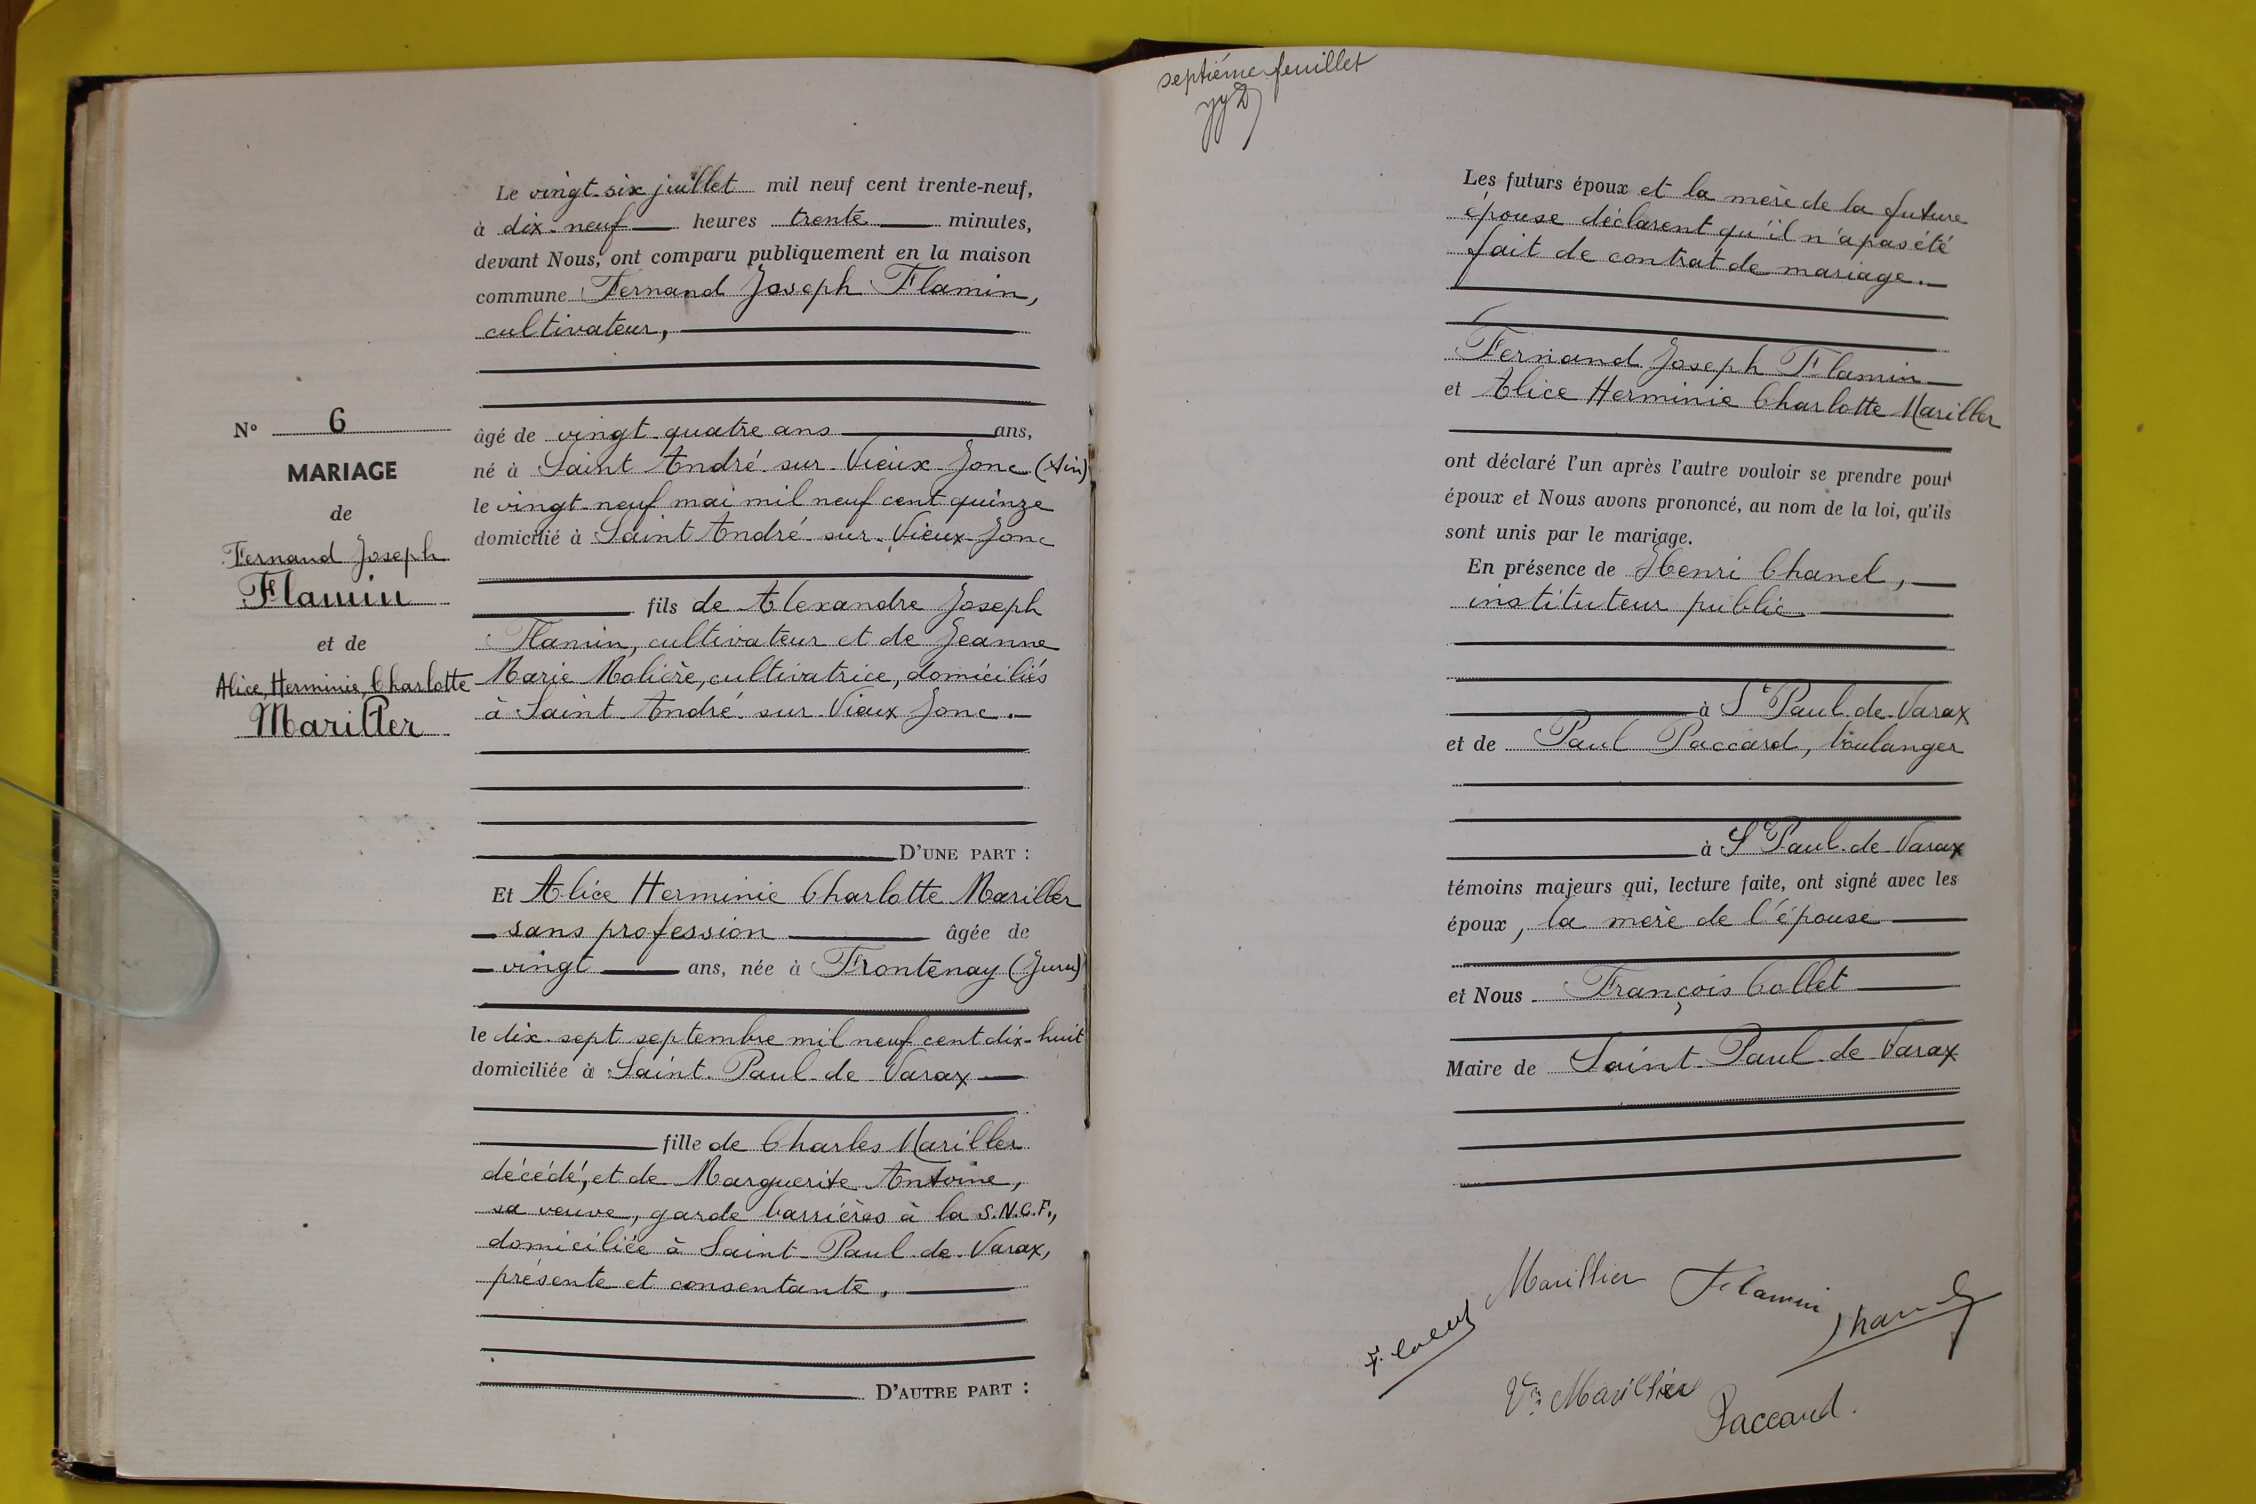 N° 6
MARIAGE
de
Fernand Joseph
Flamin
et de
Alice, Herminie, Charlotte
Mariller
Le vingt-six juillet mil neuf cent trente-neuf,
à dix-neuf heures trente minutes,
devant Nous, ont comparu publiquement en la maison
commune Fernand Joseph Flamin,
cultivateur,
âgé de vingt-quatre ans ans,
né à Saint-André-sur-Vieux-Jonc (Ain)
le vingt-neuf mai mil neuf cent quinze
domicilié à Saint-André-sur-Vieux-Jonc
fils de Alexandre Joseph
Flamin, cultivateur et de Jeanne
Marie Molière, cultivatrice, domiciliés
à Saint-André-sur-Vieux Jonc.
D'UNE PART :
Et Alice Herminie Charlotte Mariller
sans profession âgée de
vingt ans, née à Frontenay (Jura)
le dix-sept septembre mil neuf cent dix-huit
domiciliée à Saint-Paul-de-Varax
fille de Charles Mariller
décédé, et de Marguerite Antoine,
sa veuve, garde barrières à la S.N.C.F.,
domiciliée à Saint-Paul-de-Varax,
présente et consentante.
D'AUTRE PART :
septième feuillet
Les futurs époux et la mère de la future
épouse déclarent qu'il n'a pas été
fait de contrat de mariage.
Fernand Joseph Flamin
et Alice Herminie Charlotte Mariller
ont déclaré l'un après l'autre vouloir se prendre pour
époux et Nous avons prononcé, au nom de la loi, qu'ils
sont unis par le mariage.
En présence de Henri Chanel,
instituteur public
à St Paul-de-Varax
et de Paul Paccard, boulanger
à St Paul-de-Varax
témoins majeurs qui, lecture faite, ont signé avec les
époux, la mère de l'épouse
et Nous François Collet
Maire de Saint-Paul-de-Varax
Marillier Flamin
F. Collet Chanel
Vve Marillier
Paccard.